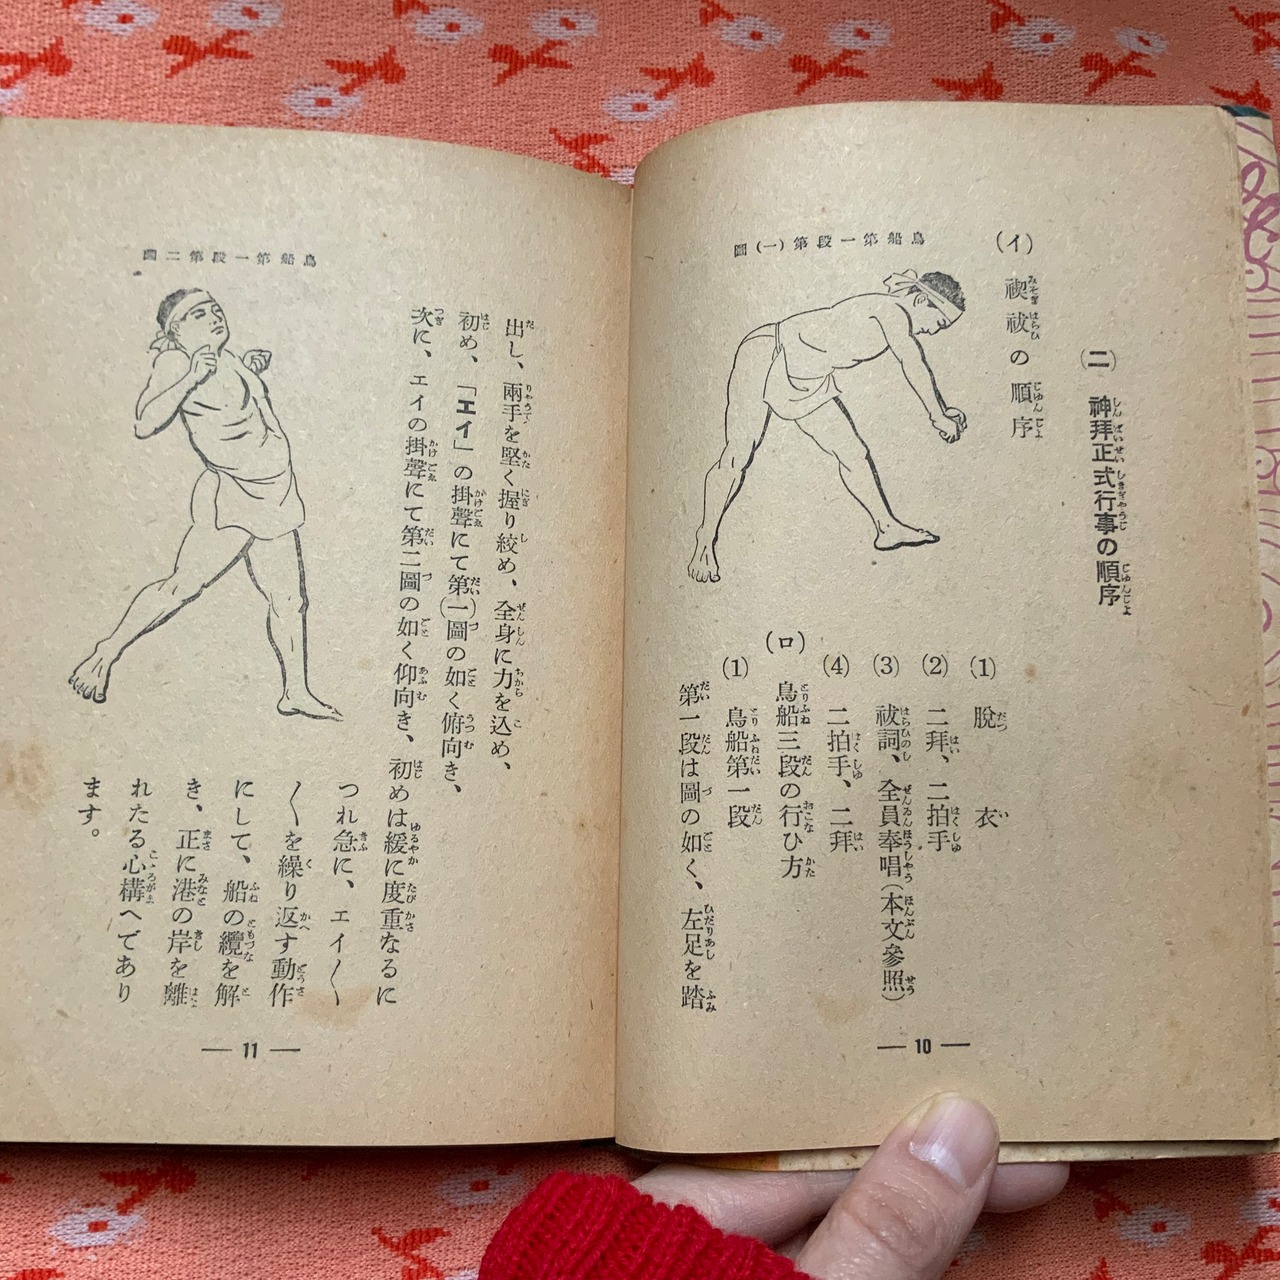 ㈡ 神拜正式行事の順序
(イ) 禊祓の順序
(1) 脫衣
(2) 二拜、二拍手
(3) 祓詞、全員奉唱(本文參照)
(4) 二拍手、二拜
(ロ) 鳥船三段の行ひ方
(1) 鳥船第一段
第一段は圖の如く、左足を踏
圖(一)第段一第船鳥
— 10 —
出し、兩手を堅く握り絞め、全身に力を込め、
初め、「エイ」の掛聲にて第(一)圖の如く俯向き、
次に、エイの掛聲にて第二圖の如く仰向き、初めは緩に度重なるに
つれ急に、エイ〳〵
〳〵を繰り返す動作
にして、船の纜を解
き、正に港の岸を離
れたる心構へであり
ます。
圖二第段一第船鳥
— 11 —